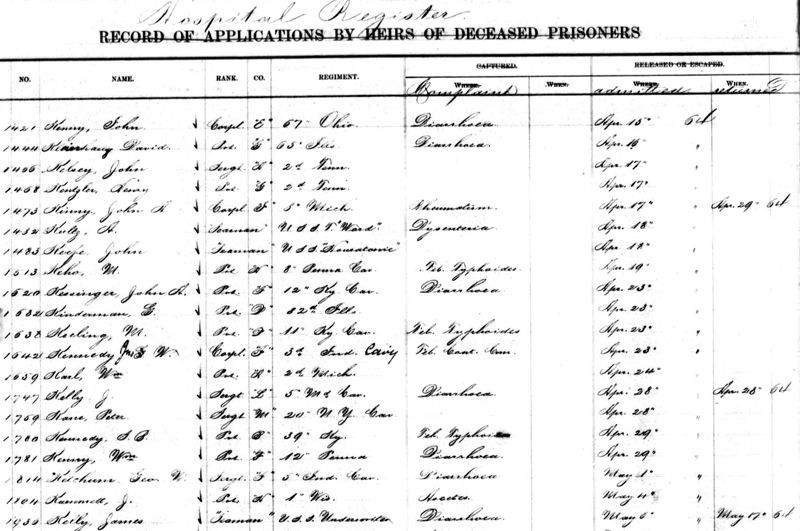 Hospital Register
RECORD OF APPLICATIONS BY HEIRS OF DECEASED PRISONERS
CAPTURED. RELEASED OR ESCAPED.
NO. NAME. RANK. CO. REGIMENT. WHERE. WHEN. WHERE. WHEN.
Complaint admitted returned
1421 Kenny, John Corpl "E" 67" Ohio Diarrhoea Apr. 15" 64
1444 David Pvt 65" Ills Diarrhoea Apr. 16 "
1456 Kelsey, John Sergt "K" 2d Tenn Apr. 17" "
1458 Pvt "G" 2d Tenn Apr. 17" "
1473 Kinny, John H Corpl "F" 5" Mich Rheumatism Apr. 17" " Apr. 29" 64
1482 Kultz, A. Seaman" U S S T. "Ward" Dysenteria Apr. 18" "
1483 Keefe, John "Seaman" U S S "Housatonic" Apr. 18" "
1513 Keho, M. Pvt "K" 8" Penna Cav Feb. Typhoides Apr. 19" "
1520 Kessinger, John A. Pvt "F" 12" Ky Cav Diarrhoea Apr. 23" "
1532 Kinderman, G. Pvt "D" 82d Ills. Apr. 23" "
1538 Keeling, M. Pvt "F" 11" Ky Cav Feb. Typhoides Apr. 23" "
1542 Kennedy W. Corpl "F" 3d Ind. Cavy Feb. Cont. Com. Apr. 23" "
1559 Karl, Wm Pvt "K" 2d Mich. Apr. 24" "
1747 Kelly J. Sergt "L" 5" Md Cav Diarrhoea Apr. 28" " Apr. 28" 64
1759 Kane, Peter Sergt "M" 20" N Y. Cav Apr. 28" "
1780 Kennedy, S. B. Pvt "B" 39" Ky. Feb. Typhoides Apr. 29" "
1781 Kenny, Wm Pvt "F" 12" Penna Diarrhoea Apr. 29" "
1814 Ketchum, Geo W. Sergt "F" 5" Ind. Cav Diarrhoea May 1" "
Kammell, J. Pvt "K" 1" Wis. May 4" "
1933 Keily, James "Seaman" U.S.S Underwriter Diarrhoea May 6" " May 17" 64